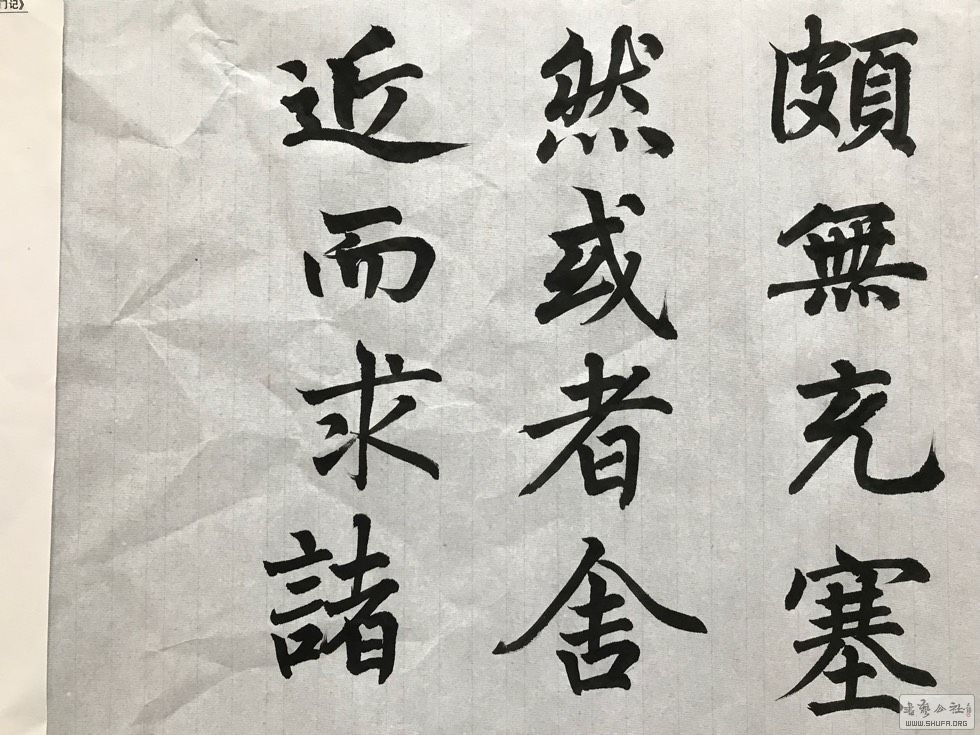 頗無充塞
然或者舍
近而求諸
门记》
書艺公社
WWW.SHUFA.ORG